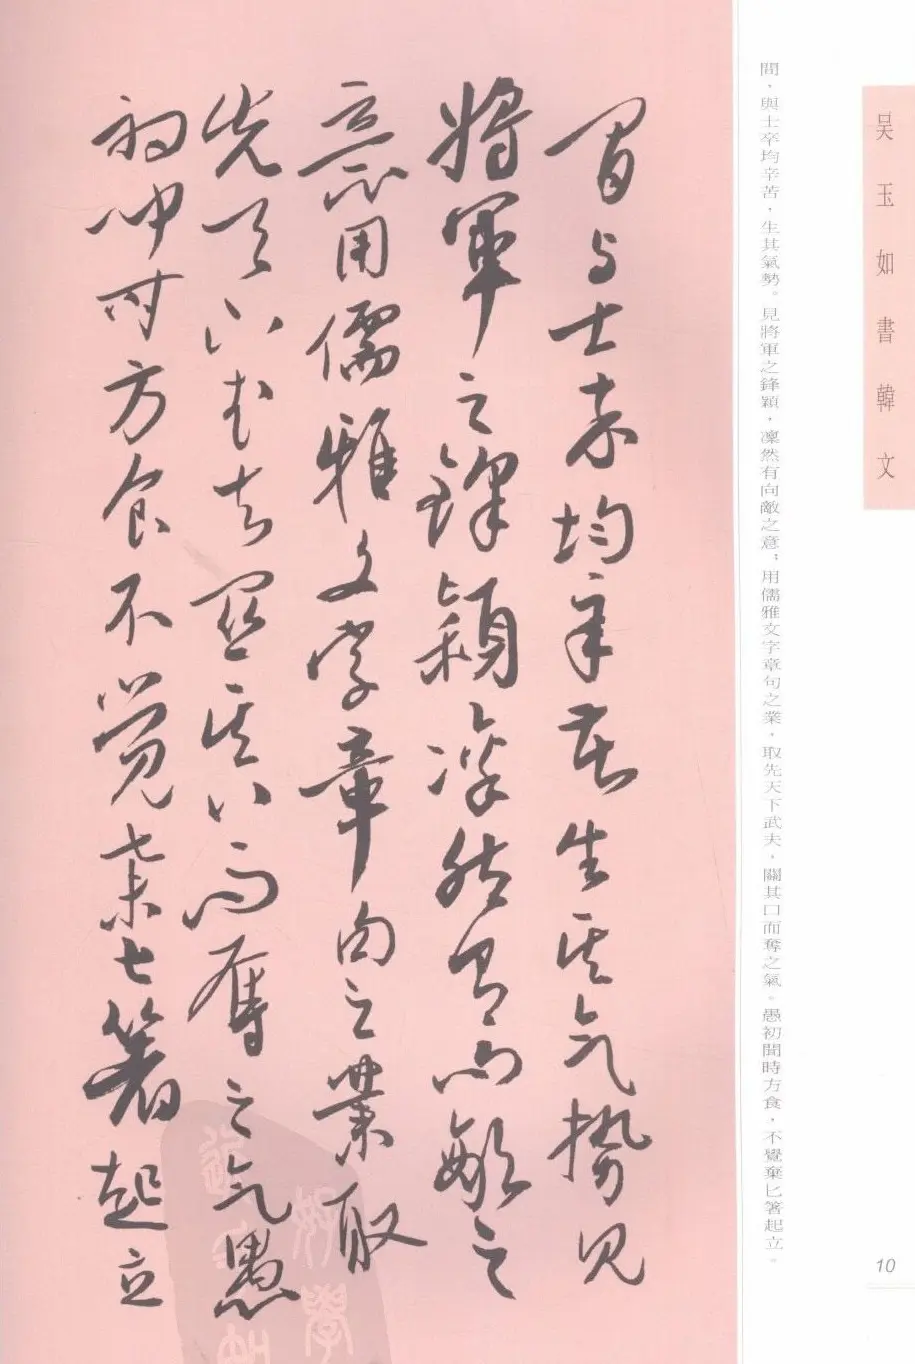 吴玉如書韓文
10
間，與士卒均辛苦，生其氣勢。見將軍之鋒穎，凜然有向敵之意；用儒雅文字章句之業，取先天下武夫，關其口而奪之氣。愚初聞時方食，不覺棄匕箸起立。
間与士卒均辛苦生其气勢見
將軍之鋒穎凜然有向敵之
意用儒雅文字章句之業取
先天下武夫關其口而奪之气愚
初聞时方食不覺棄匕箸起立